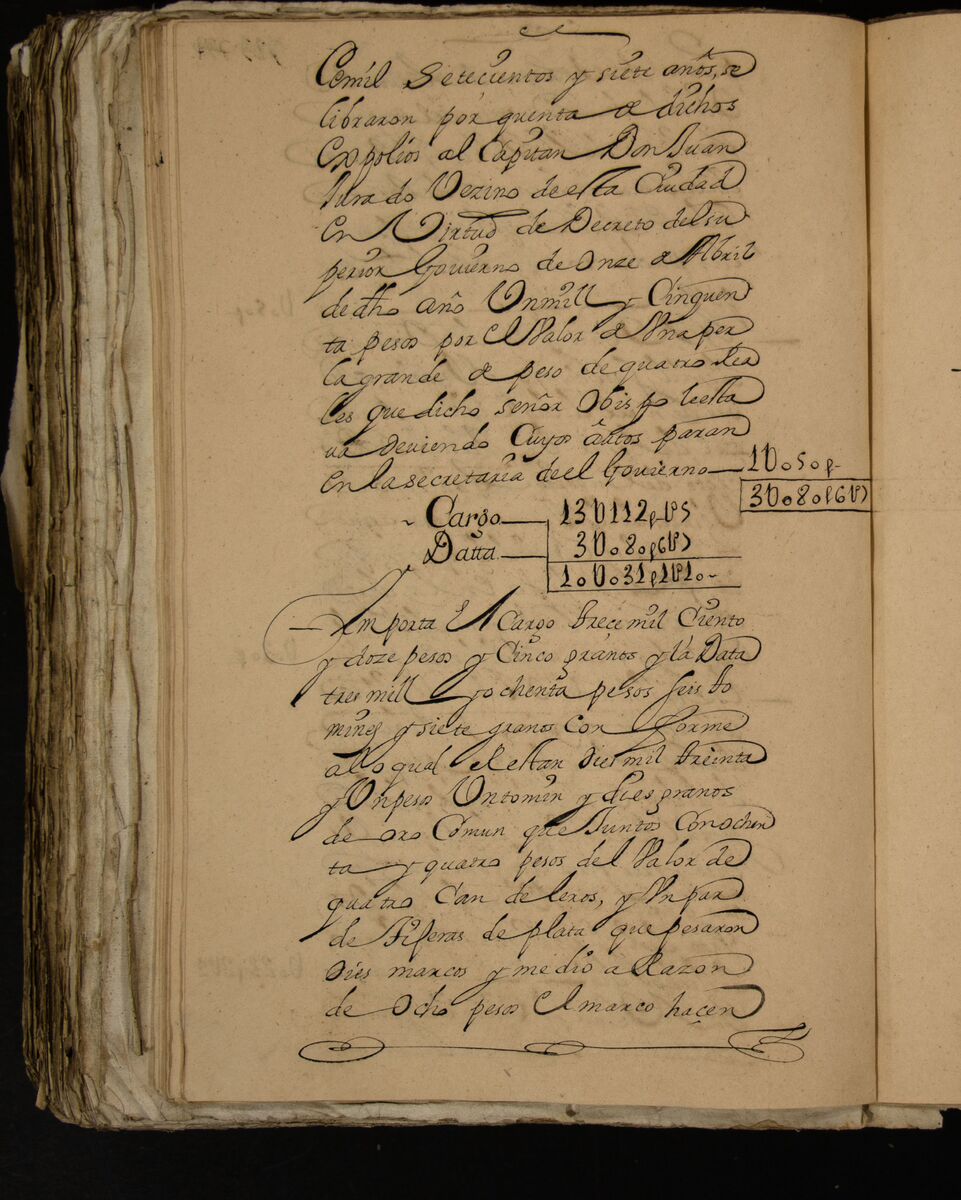 Cemil Setecientos y siete años, se
libraron por quenta de dichos
Expolios al Capitan Don Juan
Jurado Vezino de esta Ciudad
en Virtud de Decreto del su
perior Govierno de onze de Abril
de dho año Unmill y Cinquen
ta pesos por el Valor de Una per
la grande de peso de quatro Rea
les que dicho señor Obispo leesta
va deviendo Cuyos autos paran
en la secretaria de el Govierno — 1U050p
3U080p6t7
Cargo — 13U112p t5
Datta — 3U080p6t7
10U031p1t10
Importa El Cargo trece mil Ciento
y doze pesos y Cinco granos y la Data
tres mill y ochenta pesos seis to
mines y siete granos con forme
alo qual Restan Dies mil treinta
y Un peso Un tomin y dies granos
de oro Comun que Juntos Con ochen
ta y quatro pesos del Valor de
quatro Can de leros, y Un par
de de plata que pesaron
Dies marcos y medio a Razon
de Ocho pesos el marco hacen